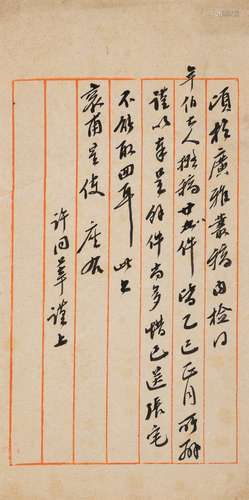 頃於廣雅叢稿内檢得
年伯大人擬稿廿九件皆乙巳正月所辦
謹以奉呈餘件尚多惜已送張宅
不能取回耳此上
袞甫星使座右
許同莘謹上